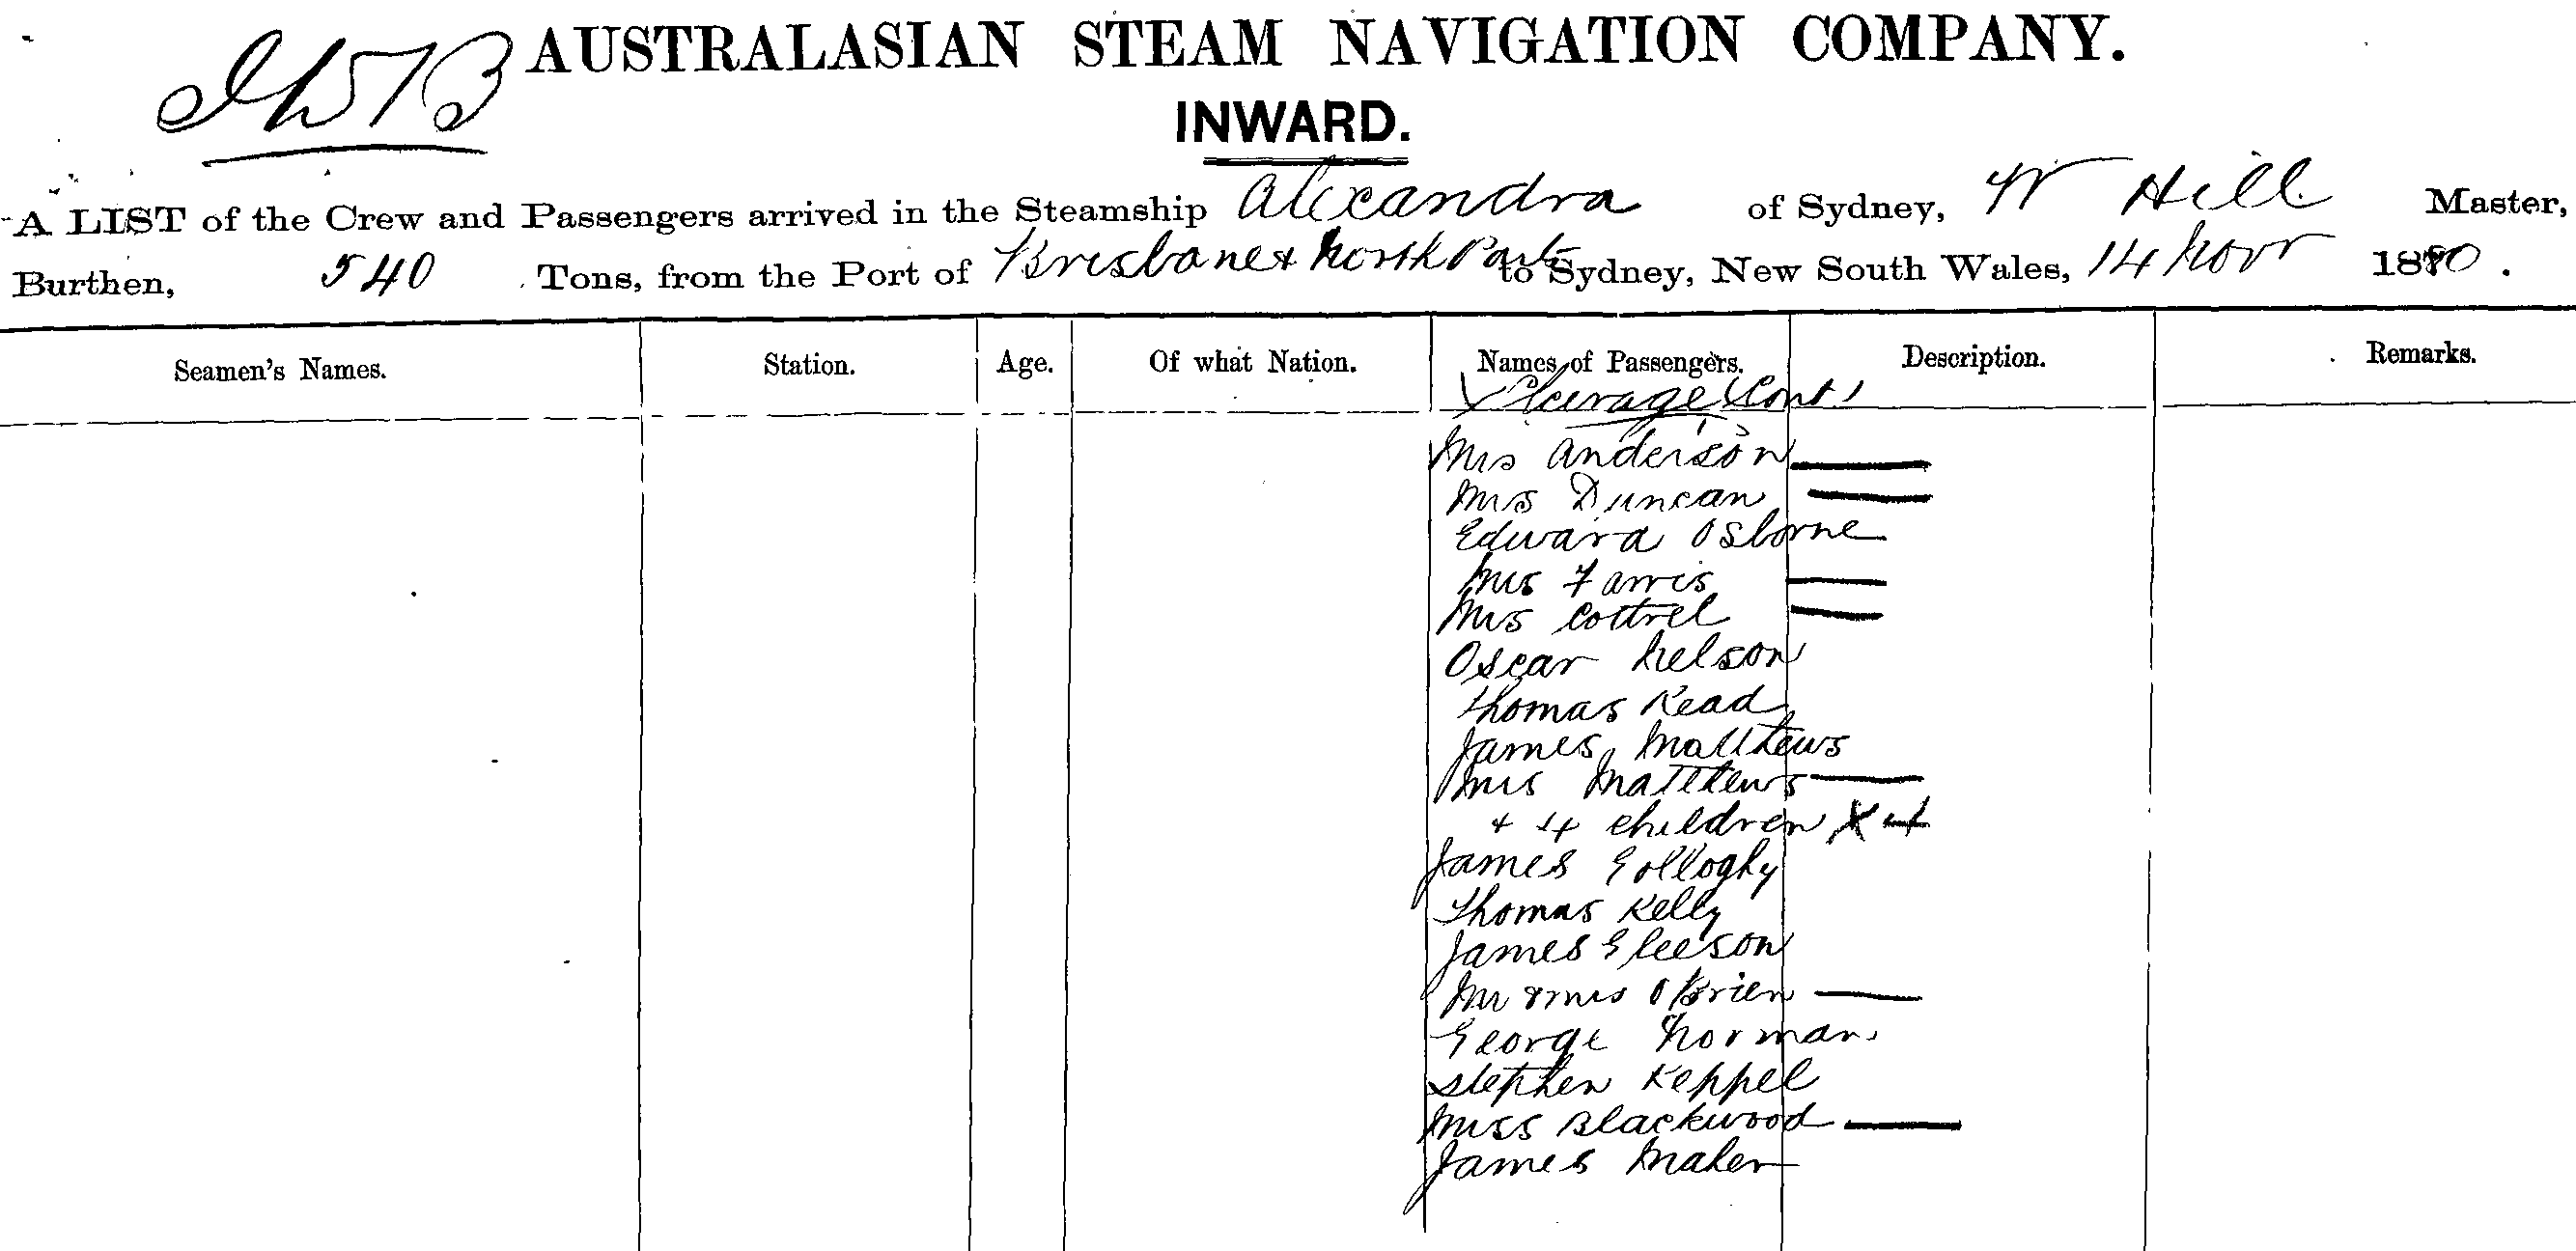 AUSTRALASIAN STEAM NAVIGATION COMPANY.
INWARD.
A LIST of the Crew and Passengers arrived in the Steamship Alexandra of Sydney, W Hill Master,
Burthen, 540 Tons, from the Port of Brisbane & North Ports to Sydney, New South Wales, 14 Novr 1880.
Seamen's Names. Station. Age. Of what Nation. Names of Passengers. Description. Remarks.
Steerage Cont
Mrs Anderson
Mrs Duncan
Edward Osborne
Mrs Farris
Mrs Cottrel
Oscar Nelson
Thomas Read
James Matthews
Mrs Matthews
+ 4 children X 4
James Golloghy
Thomas Kelly
James Gleeson
Mr & Mrs O'Brien
George Norman
Stephen Keppel
Miss Blackwood
James Maher